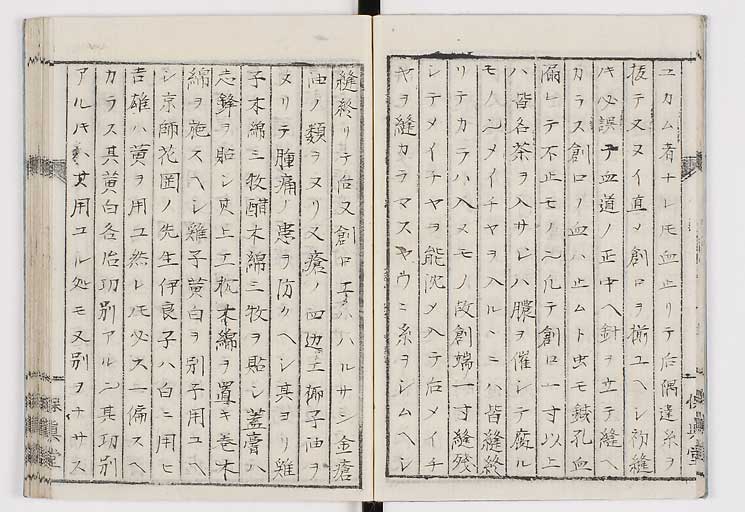 ユカム者ナレ𪜈血止リテ后隅違糸ヲ
抜テ又ヌイ直メ創口ヲ揃ユヘシ初縫
キ必誤テ血道ノ正中ヘ針ヲ立テ縫ヘ
カラス創口ノ血ハ止ムト虫モ鍼孔血
漏レテ不止モノ凢テ創口一寸以上
ハ皆各茶ヲ入サレハ膿ヲ催シテ腐ル
モノ メイチヤヲ入ル ニハ皆縫終
リテカラハ入メモノ故創端一寸縫残
シテメイチヤヲ能沈メ入テ后メイチ
ヤヲ縫カラマスヤウニ糸ヲシムヘシ
縫終リテ后又創口エ ハルサシ金瘡
油ノ類ヲヌリ又瘡ノ四边エ椰子油ヲ
ヌリテ腫痛ノ患ヲ防クヘシ其ヨリ雞
子木綿三牧醋木綿三牧ヲ貼シ蓋膏ハ
志鋒ヲ貼シ其上エ枕木綿ヲ置キ巻木
綿ヲ施スヘシ雞子黄白ヲ別子用ユヘ
シ京師花岡ノ先生伊良子ハ白ニ用ヒ
吉雄ハ黄ヲ用ユ然レ𪜈必ス一偏スヘ
カラス其黄白各治功別アル 其功別
アルキハ其用ユル処モ又別ヲナサス
保真堂
保真堂